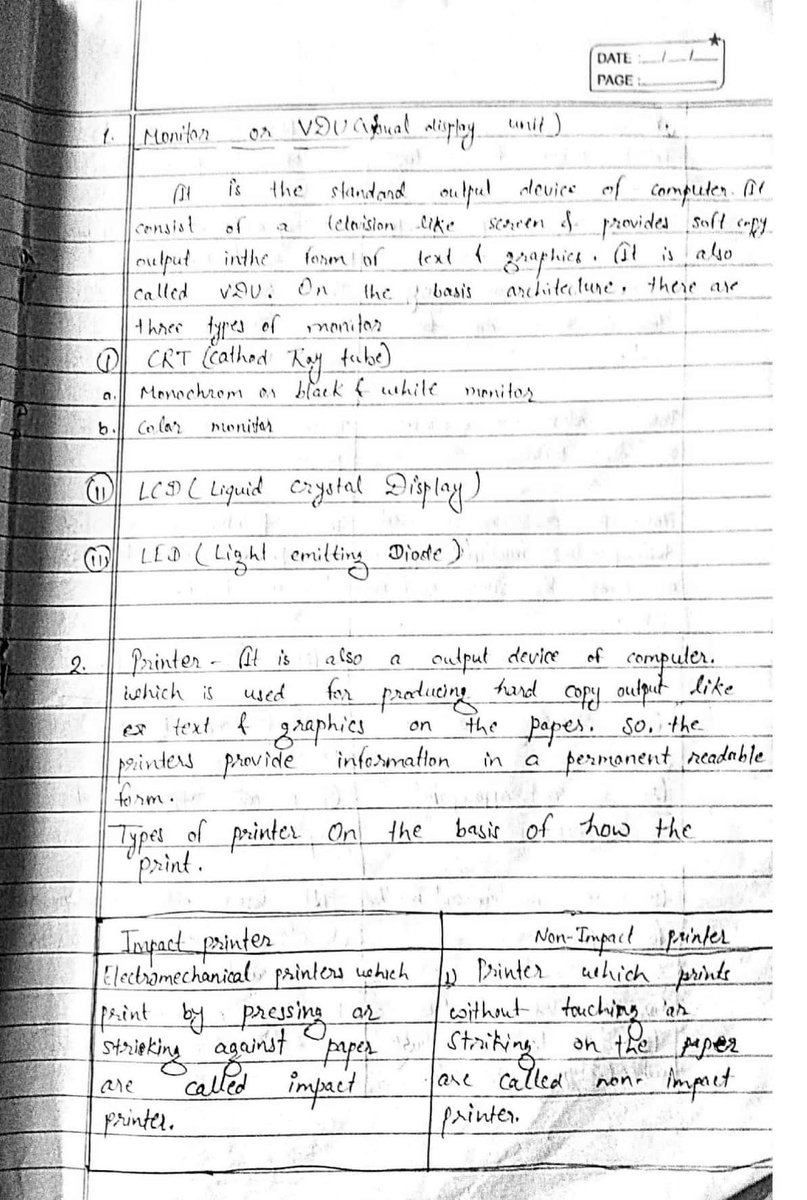 DATE : __/__/__
PAGE :
1. Monitor or VDU (Visual display unit)
It is the standard output device of computer. It
consist of a television like screen & provides soft copy
output inthe form of text & graphics. It is also
called VDU. On the basis architecture, there are
three types of monitor
(I) CRT (Cathod Ray tube)
a. Monochrom or black & while monitor
b. Color monitor
(II) LCD (Liquid crystal Display)
(III) LED (Light emitting Diode)
2. Printer - It is also a output device of computer.
which is used for producing hard copy output like
ex text & graphics on the paper. So, the
printers provide information in a permanent readable
form.
Types of printer On the basis of how the
print.
Impact printer
Electromechanical printers which
print by pressing or
strieking against paper
are called impact
printer.
Non-Impact printer
1) Printer which prints
without touching or
Striking on the paper
are called non-impact
printer.